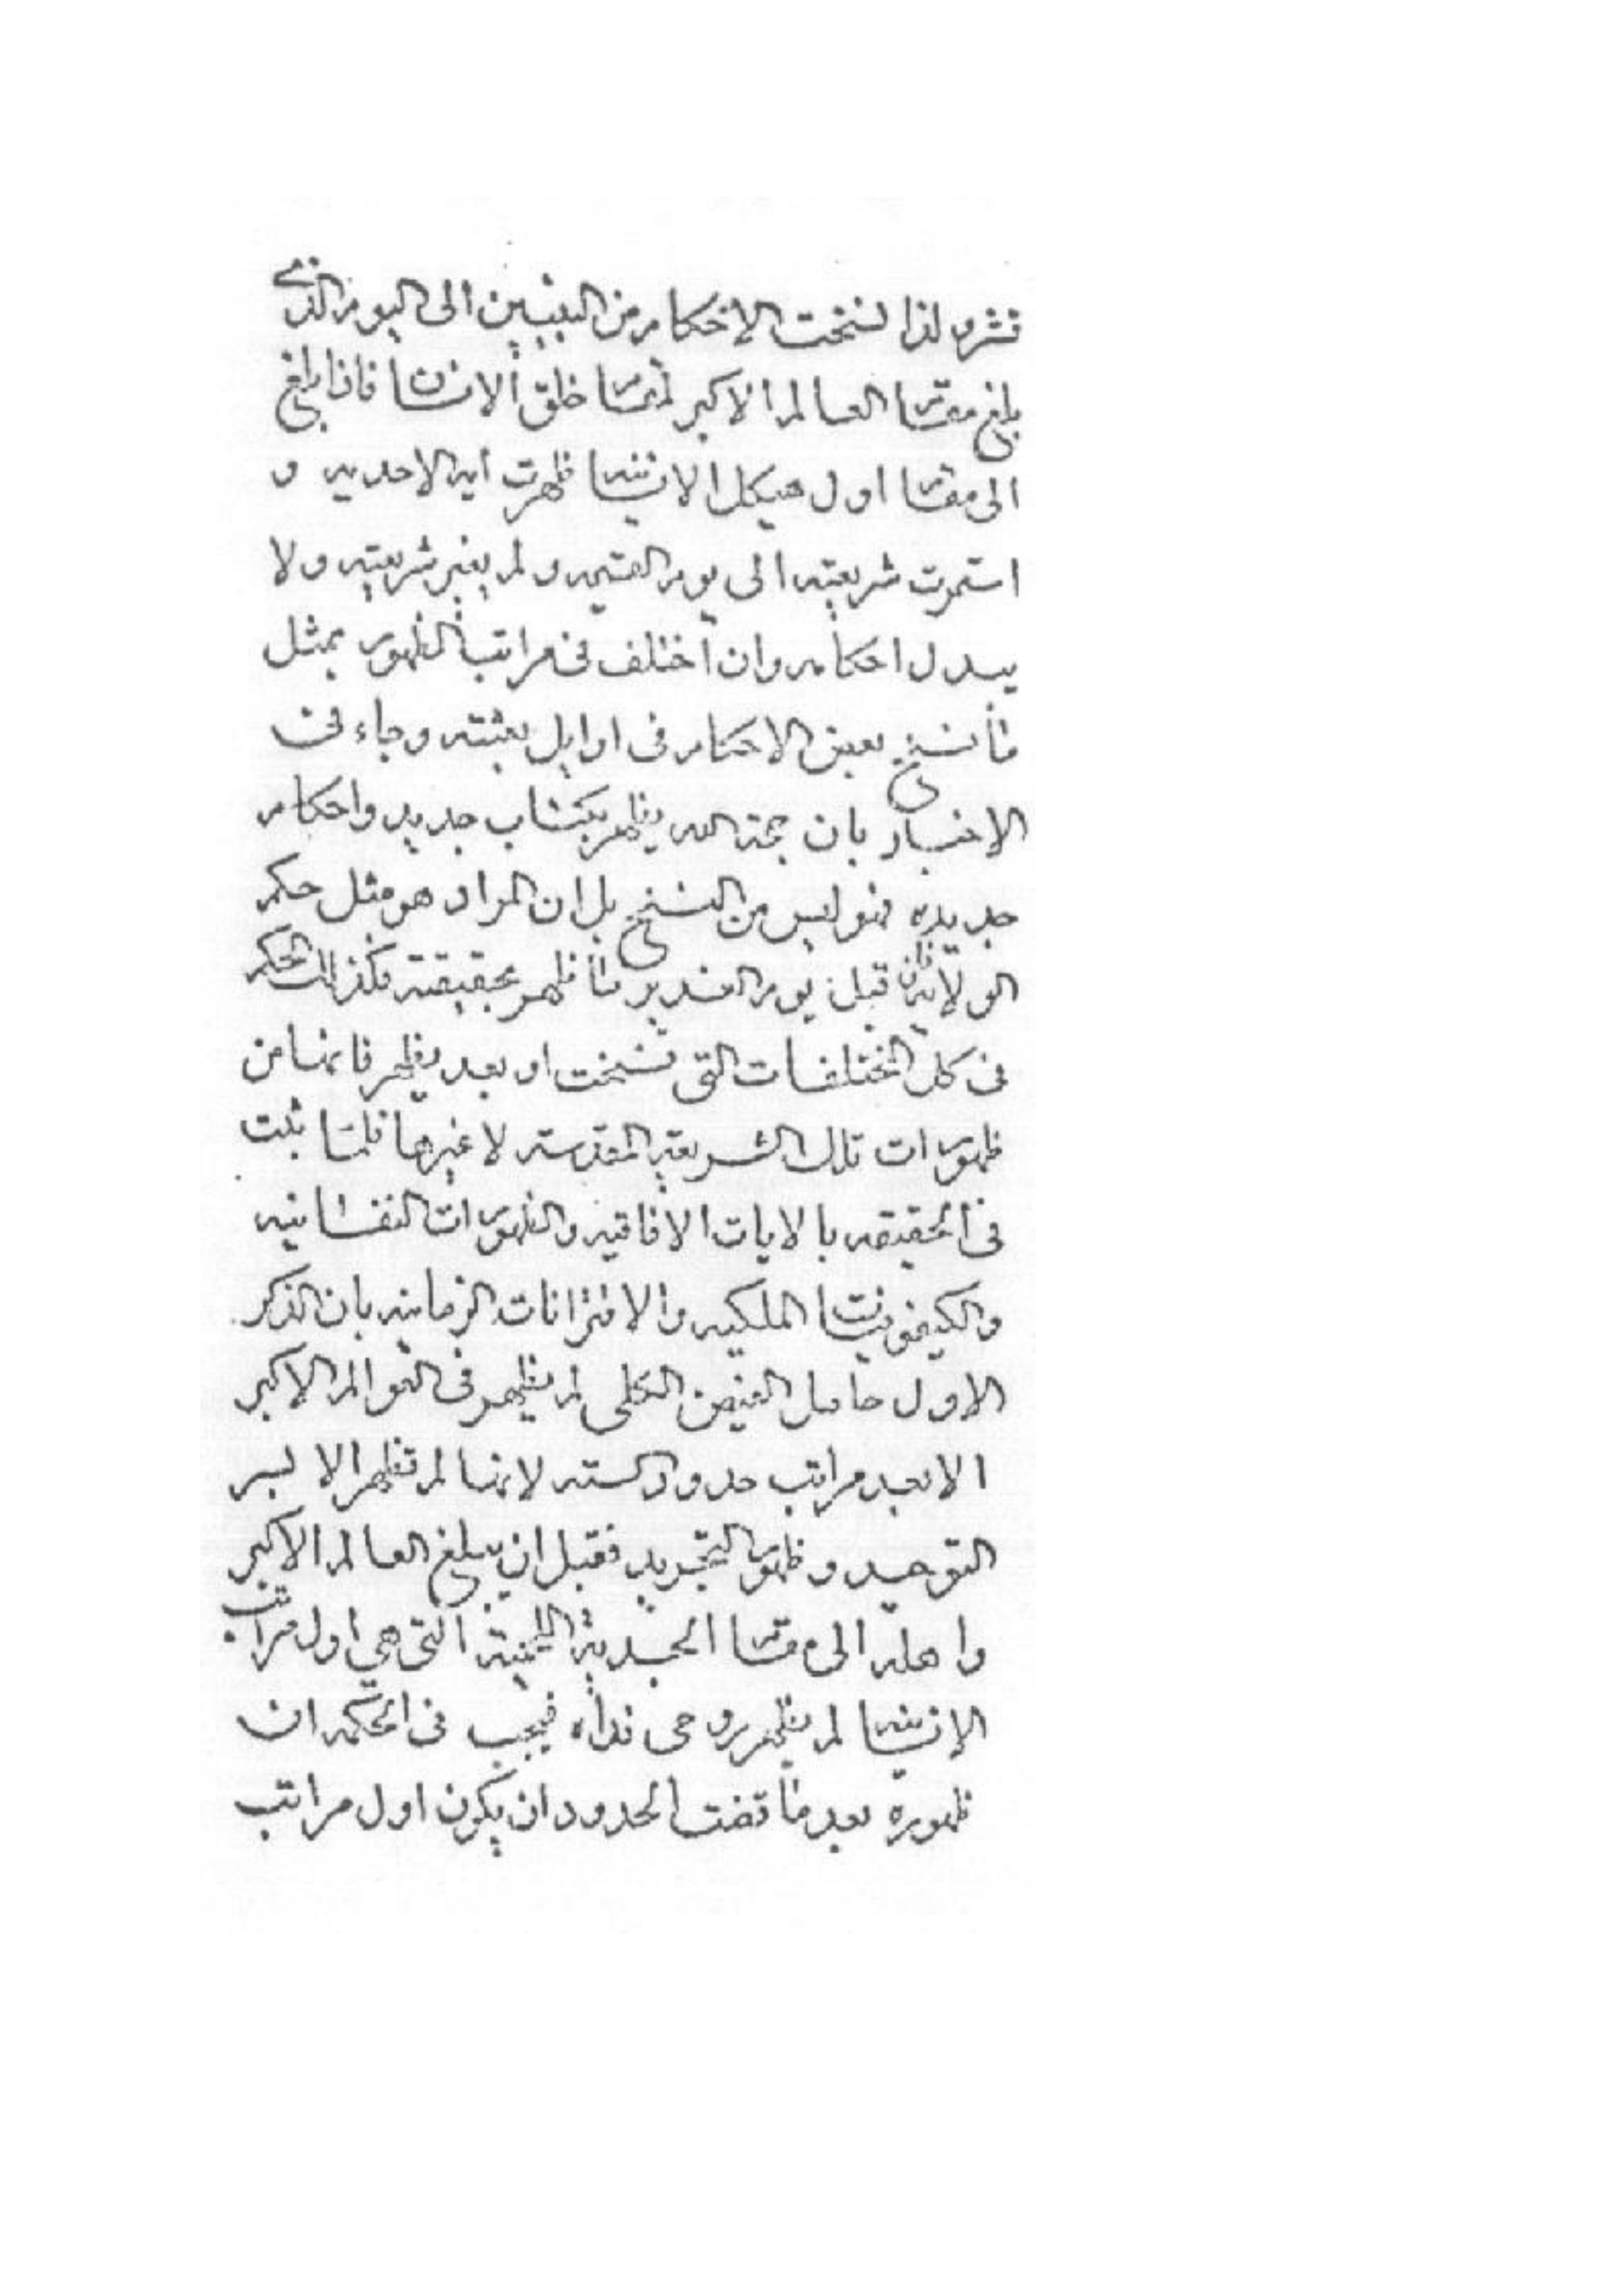 لذا نسخت الاحكام من النبيين الى اليوم الذي
بلغ مقام العالم الاكبر خلق الانسان فاذا بلغ
الى مقام اول هيكل الانسانيه ظهرت ايه الاحديه و
استمرت شريعته الى يوم القيمه و لم يغير شريعته ولا
يبدل احكامه وان اختلف في مراتب الظهور بمثل
ما نسخ بعض الاحكام في اوايل بعثته وجاء في
الاخبار بان حجة الله يظهر بكتاب جديد واحكام
جديده فهو ليس من النسخ بل ان المراد هو مثل حكم
الولاية فان قبل يوم الغدير ما ظهر بحقيقته فكذلك الحكم
في كل المختلفات التي نسخت او بعد يظهر فانها من
ظهورات تلك الشريعة المقدسته لا غيرها فلما ثبت
في الحقيقه بالايات الافاقيه والظهورات النفسانيه
والكيفوفيات الملكيه والاقترانات الزمانيه بان الذكر
الاول حامل الفيض الكلى لم يظهر في العوالم الاكبر
الا بعد مراتب حدود السته لانها لم تظهر الا لسر
التوحيد و ظهور التجريد فقبل ان يبلغ العالم الاكبر
واهله الى مقام الجسدية اللحمية التي هي اول مراتب
الانسانيه لم يظهر روحى فداه فيجب في الحكمه ان
ظهوره بعد ما قضت الحدود ان يكون اول مراتب